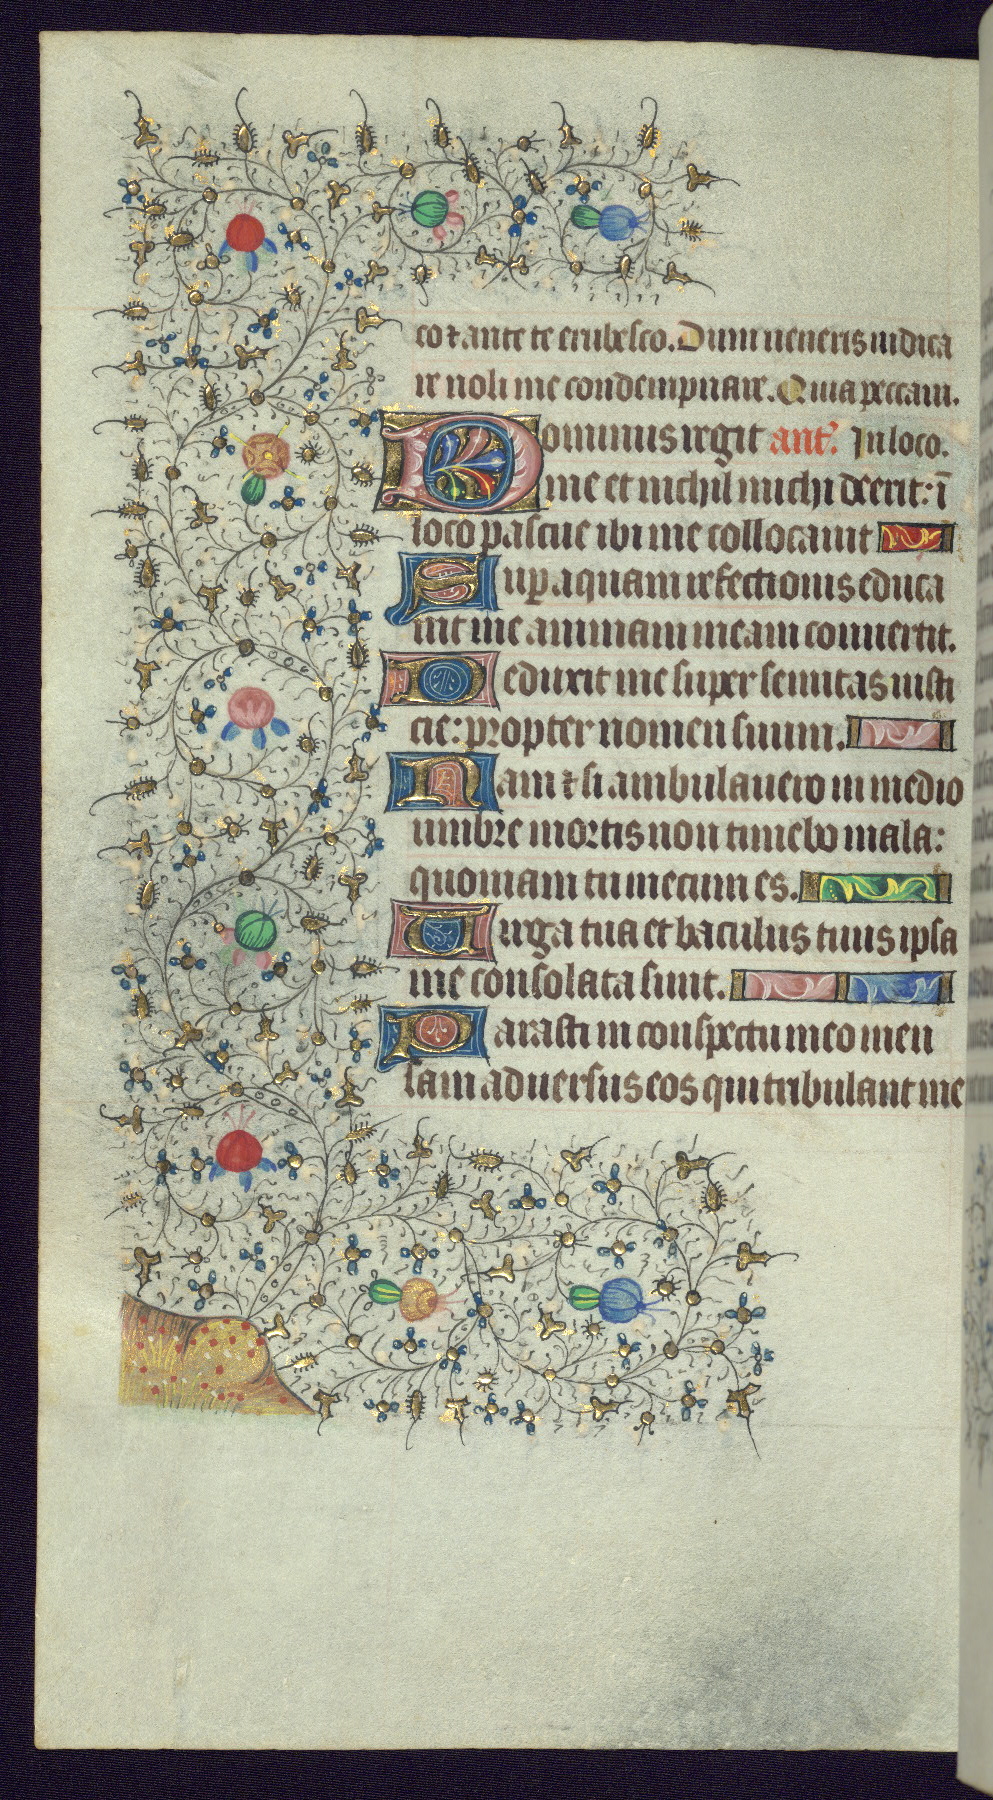 co ⁊ ante te erubesco. Dum ueneris iudica
re noli me condempnare. Quia peccaui.
Dominus regit ant'. In loco.
me et nichil michi deerit: ī
loco pascue ibi me collocauit
Suꝑ aquam refectionis educa
uit me animam meam conuertit.
Deduxit me super semitas iusti
cie: propter nomen suum.
Nam ⁊ si ambulauero in medio
umbre mortis non timebo mala:
quoniam tu mecum es.
Uirga tua et baculus tuus ipsa
me consolata sunt.
Parasti in conspectu meo men
sam aduersus eos qui tribulant me